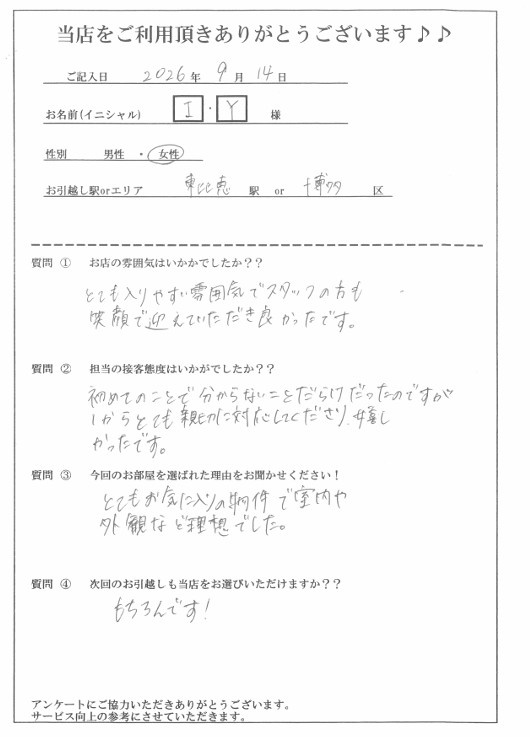 当店をご利用頂きありがとうございます♪♪
ご記入日 2026年 9月 14日
お名前(イニシャル) I・Y 様
性別 男性・女性
お引越し駅orエリア 東比恵 駅 or 博多 区
質問 ① お店の雰囲気はいかかでしたか??
とても入りやすい雰囲気でスタッフの方も
笑顔で迎えていただき良かったです。
質問 ② 担当の接客態度はいかがでしたか??
初めてのことで分からないことだらけだったのですが
1からとても親切に対応してくださり、嬉し
かったです。
質問 ③ 今回のお部屋を選ばれた理由をお聞かせください!
とてもお気に入りの物件で室内や
外観など理想でした。
質問 ④ 次回のお引越しも当店をお選びいただけますか??
もちろんです!
アンケートにご協力いただきありがとうございます。
サービス向上の参考にさせていただきます。